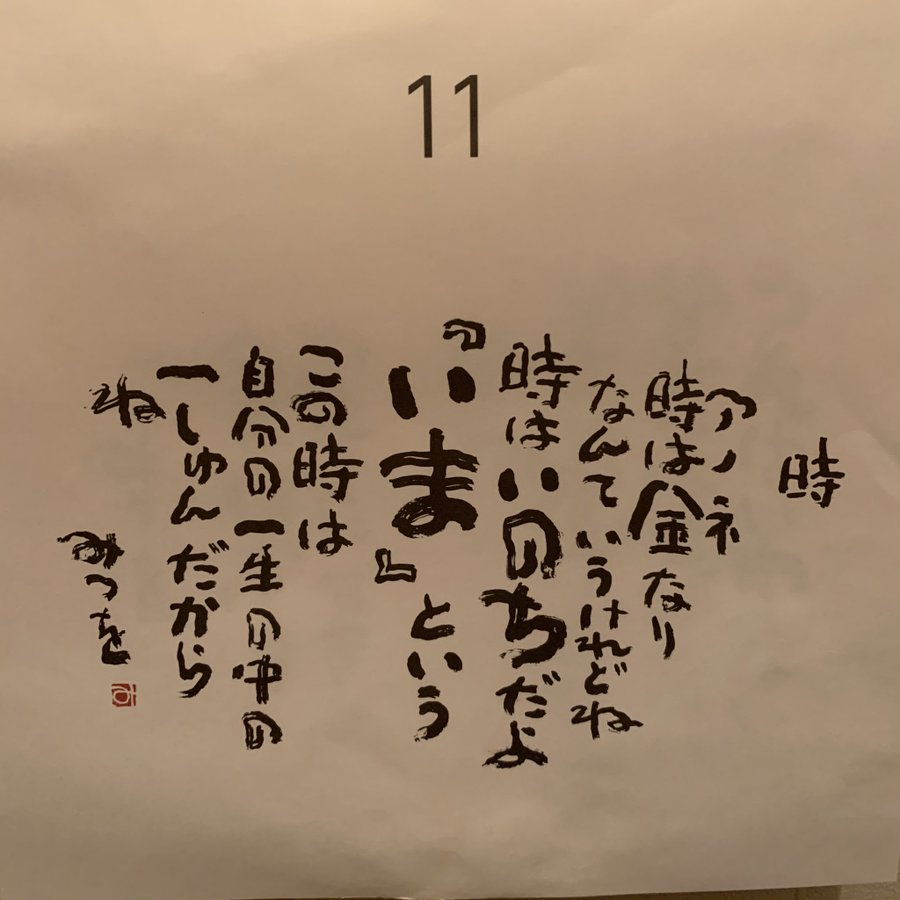 11
時
アノネ
時は金なり
なんていうけれどね
時はいのちだよ
『いま』という
この時は
自分の一生の中の
一しゅんだから
ね
みつを
み